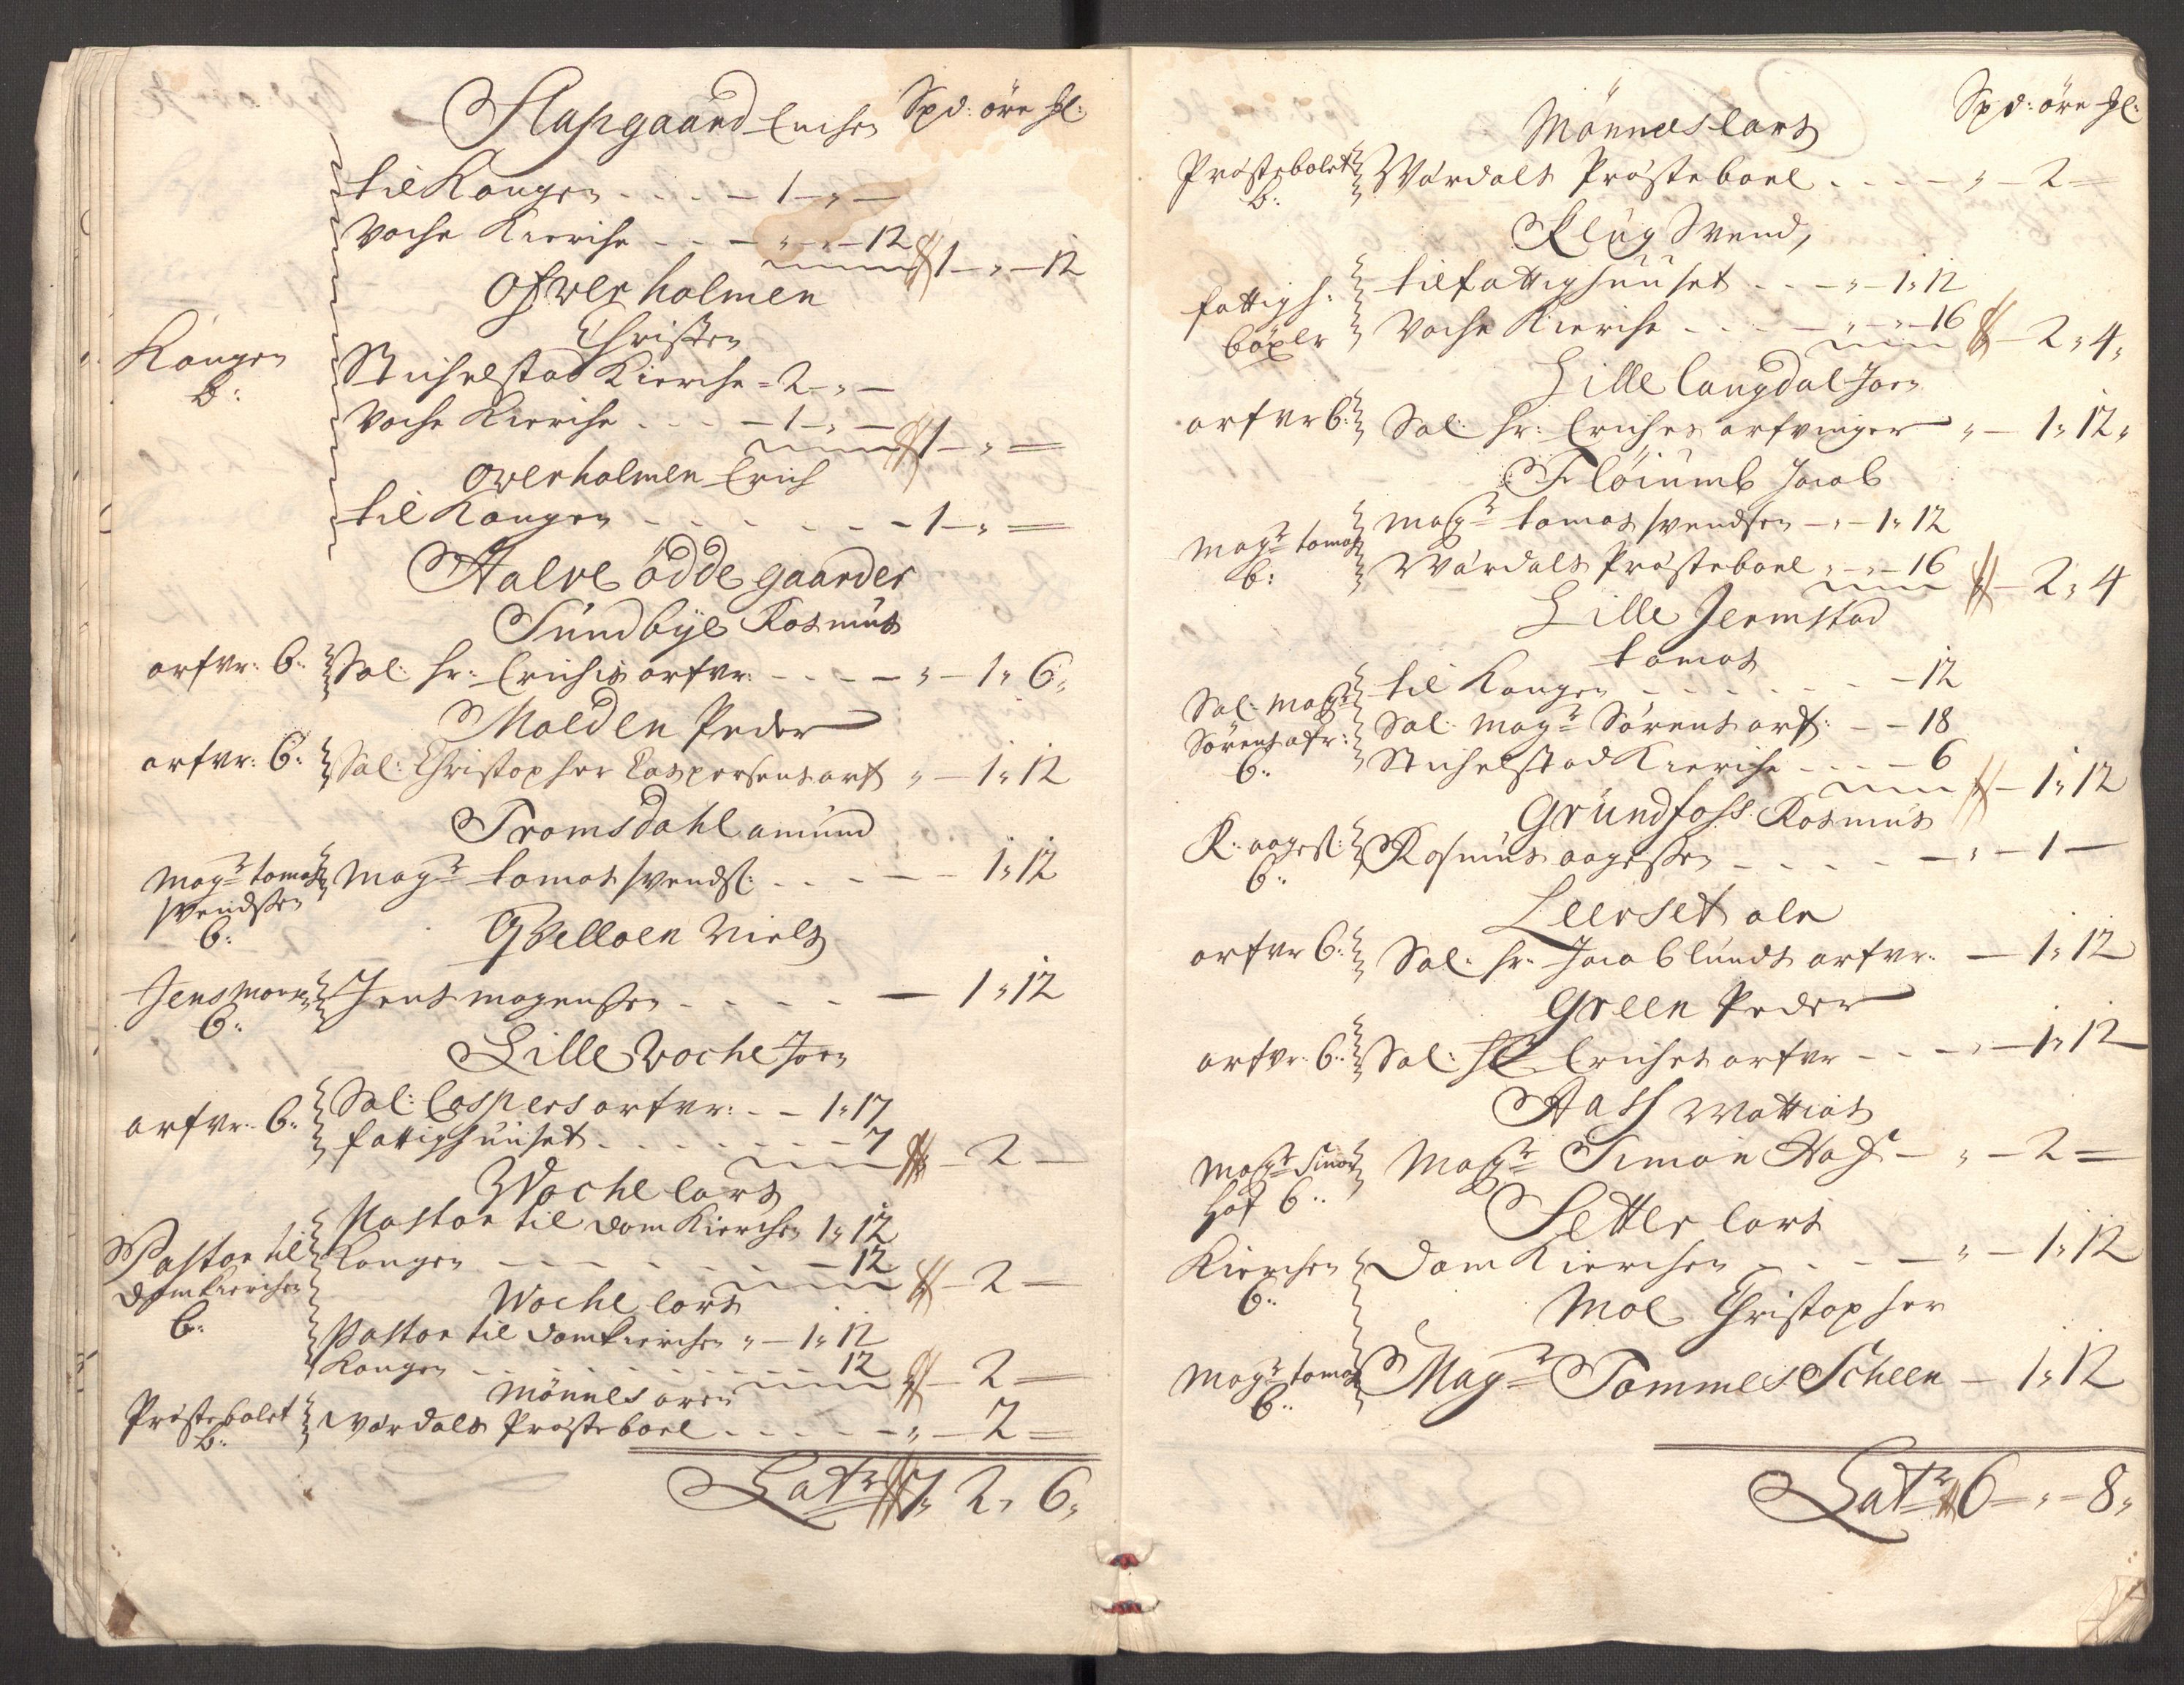 Slapgaard Erichs Spd: öre sl:
til Kongen - - - - 1 - " -
Voche Kierche - - - " - " - 12 1 - " - 12
Ofver holmen
Christen
Kongen
b:
Stichelstad Kierche = 2 - " -
Voche Kierche - - - 1 - " - 1 - " =
Overholmen Erich
til Kongen - - - - - - 1 - " =
Halve ödde gaarder
Sundbye Rasmus
arfvr: b: Sal: hr: Erichs arfvr: - - - - " - 1 " 6 "
Molden Peder
arfvr: b: Sal: Christopher Caspersens arf " - 1 " 12
Tromsdahl amund
Magr tomas
Svendsen
b:
Magr tomas Svends: - - - - 1 " 12
Qvelloen Niels
Jens Mons
b:
Jens mogensen - - - - 1 " 12
Lille Voche Joen
arfvr: b: Sal: Caspers arfvr: - - 1 " 17
fattighuuset - - - - - 7 - 2 -
Woche lars
Pastor til
Domkierchen
b:
Pastor til Dom Kierchen 1 " 12
Kongen - - - - - - 12 - 2 -
Woche lars
Pastor til Domkierchen " - 1 " 12
Kongen - - - - - - 12 - 2 =
Mönnes aren
Prästebolet
b:
Värdals Prästeboel - - - - " - 2 =
Latr 7 " 2 " 6 "
Spd: öre sl:
Mönnes lars
Prästebolet
b:
Värdals Prästeboel - - - " - 2 =
Klug Svend,
fattigh:
böxler
til fattighuuset - - " - 1 " 12
Voche Kierche - - - " - " - 16 - 2 " 4 "
Lille langdal Joen
arfvr b: Sal: hr: Erichs arfvinger " - 1 " 12 "
Fløiumb Jacob
Magr tomas
b:
Magr tomas Svendsen - " - 1 " 12
Värdals Prästeboel " - " - 16 - 2 " 4
Lille Jermstad
tomas
Sal: Magr
Sörens afr:
b:
til Kongen - - - - - - 12
Sal: Magr Sörens arf: - - 18
Stichelstad Kierche - - - 6 - 1 " 12
Grundfoss Rasmus
R: aages:
b:
Rasmus aagesen - - - - " - 1 -
Leerset ole
arfvr b: Sal: hr: Jacob lunds arfvr: - 1 " 12
Green Peder
arfvr: b: Sal: Hr Erichs arfvr - - - " - 1 " 12
Aass Mattias
Magr Simon
Hof b:
Magr Simon Hof - " - 2 =
Setter lars
Kierchen
b:
Dom Kierchen - - - - " - 1 " 12
Mol Christopher
Magr tomas
b:
Magr Tommes Scheen - 1 " 12
Latr 6 - " - 8 "